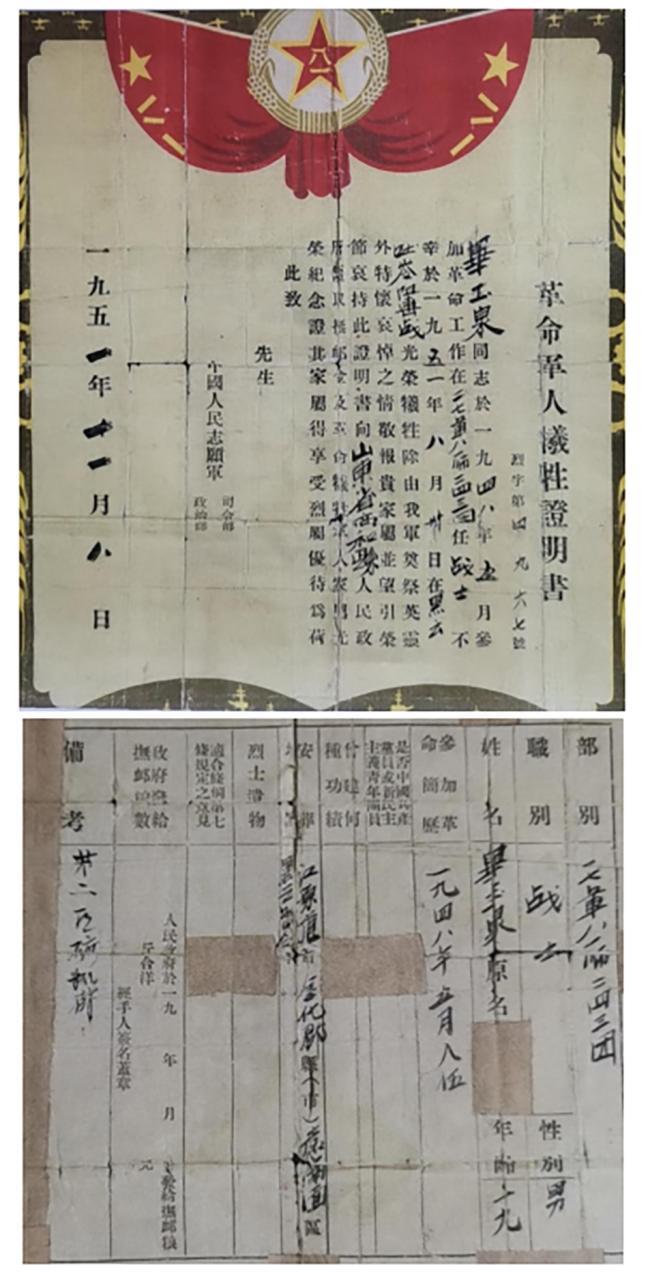 八一
八一
八一
革命軍人犧牲證明書
烈字第四九六七號
畢玉泉同志於一九四八年五月參
加革命工作在二七軍八一師二四三團任战士不
幸於一九五一年八月廿日在
光榮犧牲除由我軍奠祭英靈
外特懷哀悼之情敬報貴家屬並望引榮
節哀持此證明書向山東省人民政
府領取撫邮金及革命犧牲軍人家屬光
榮紀念證其家屬得享受烈屬優待爲荷
此致
先生
中國人民志願軍
司令部
政治部
一九五一年十一月八日
部別
二七軍八一師二四三团
職別
战士
性別
男
姓名
畢玉泉
原名
年齡
十九
參加革命簡歷
一九四八年五月入伍
是否中國共產黨員或新民主主義青年團員
曾建何種功績
安葬
江原道
金化郡
縣（市）
區
烈士遺物
適合條例第七條規定之意見
政府發給撫邮糧數
人民政府於一九 年 月 發給撫邮糧
斤合洋 元
經手人簽名蓋章
備考